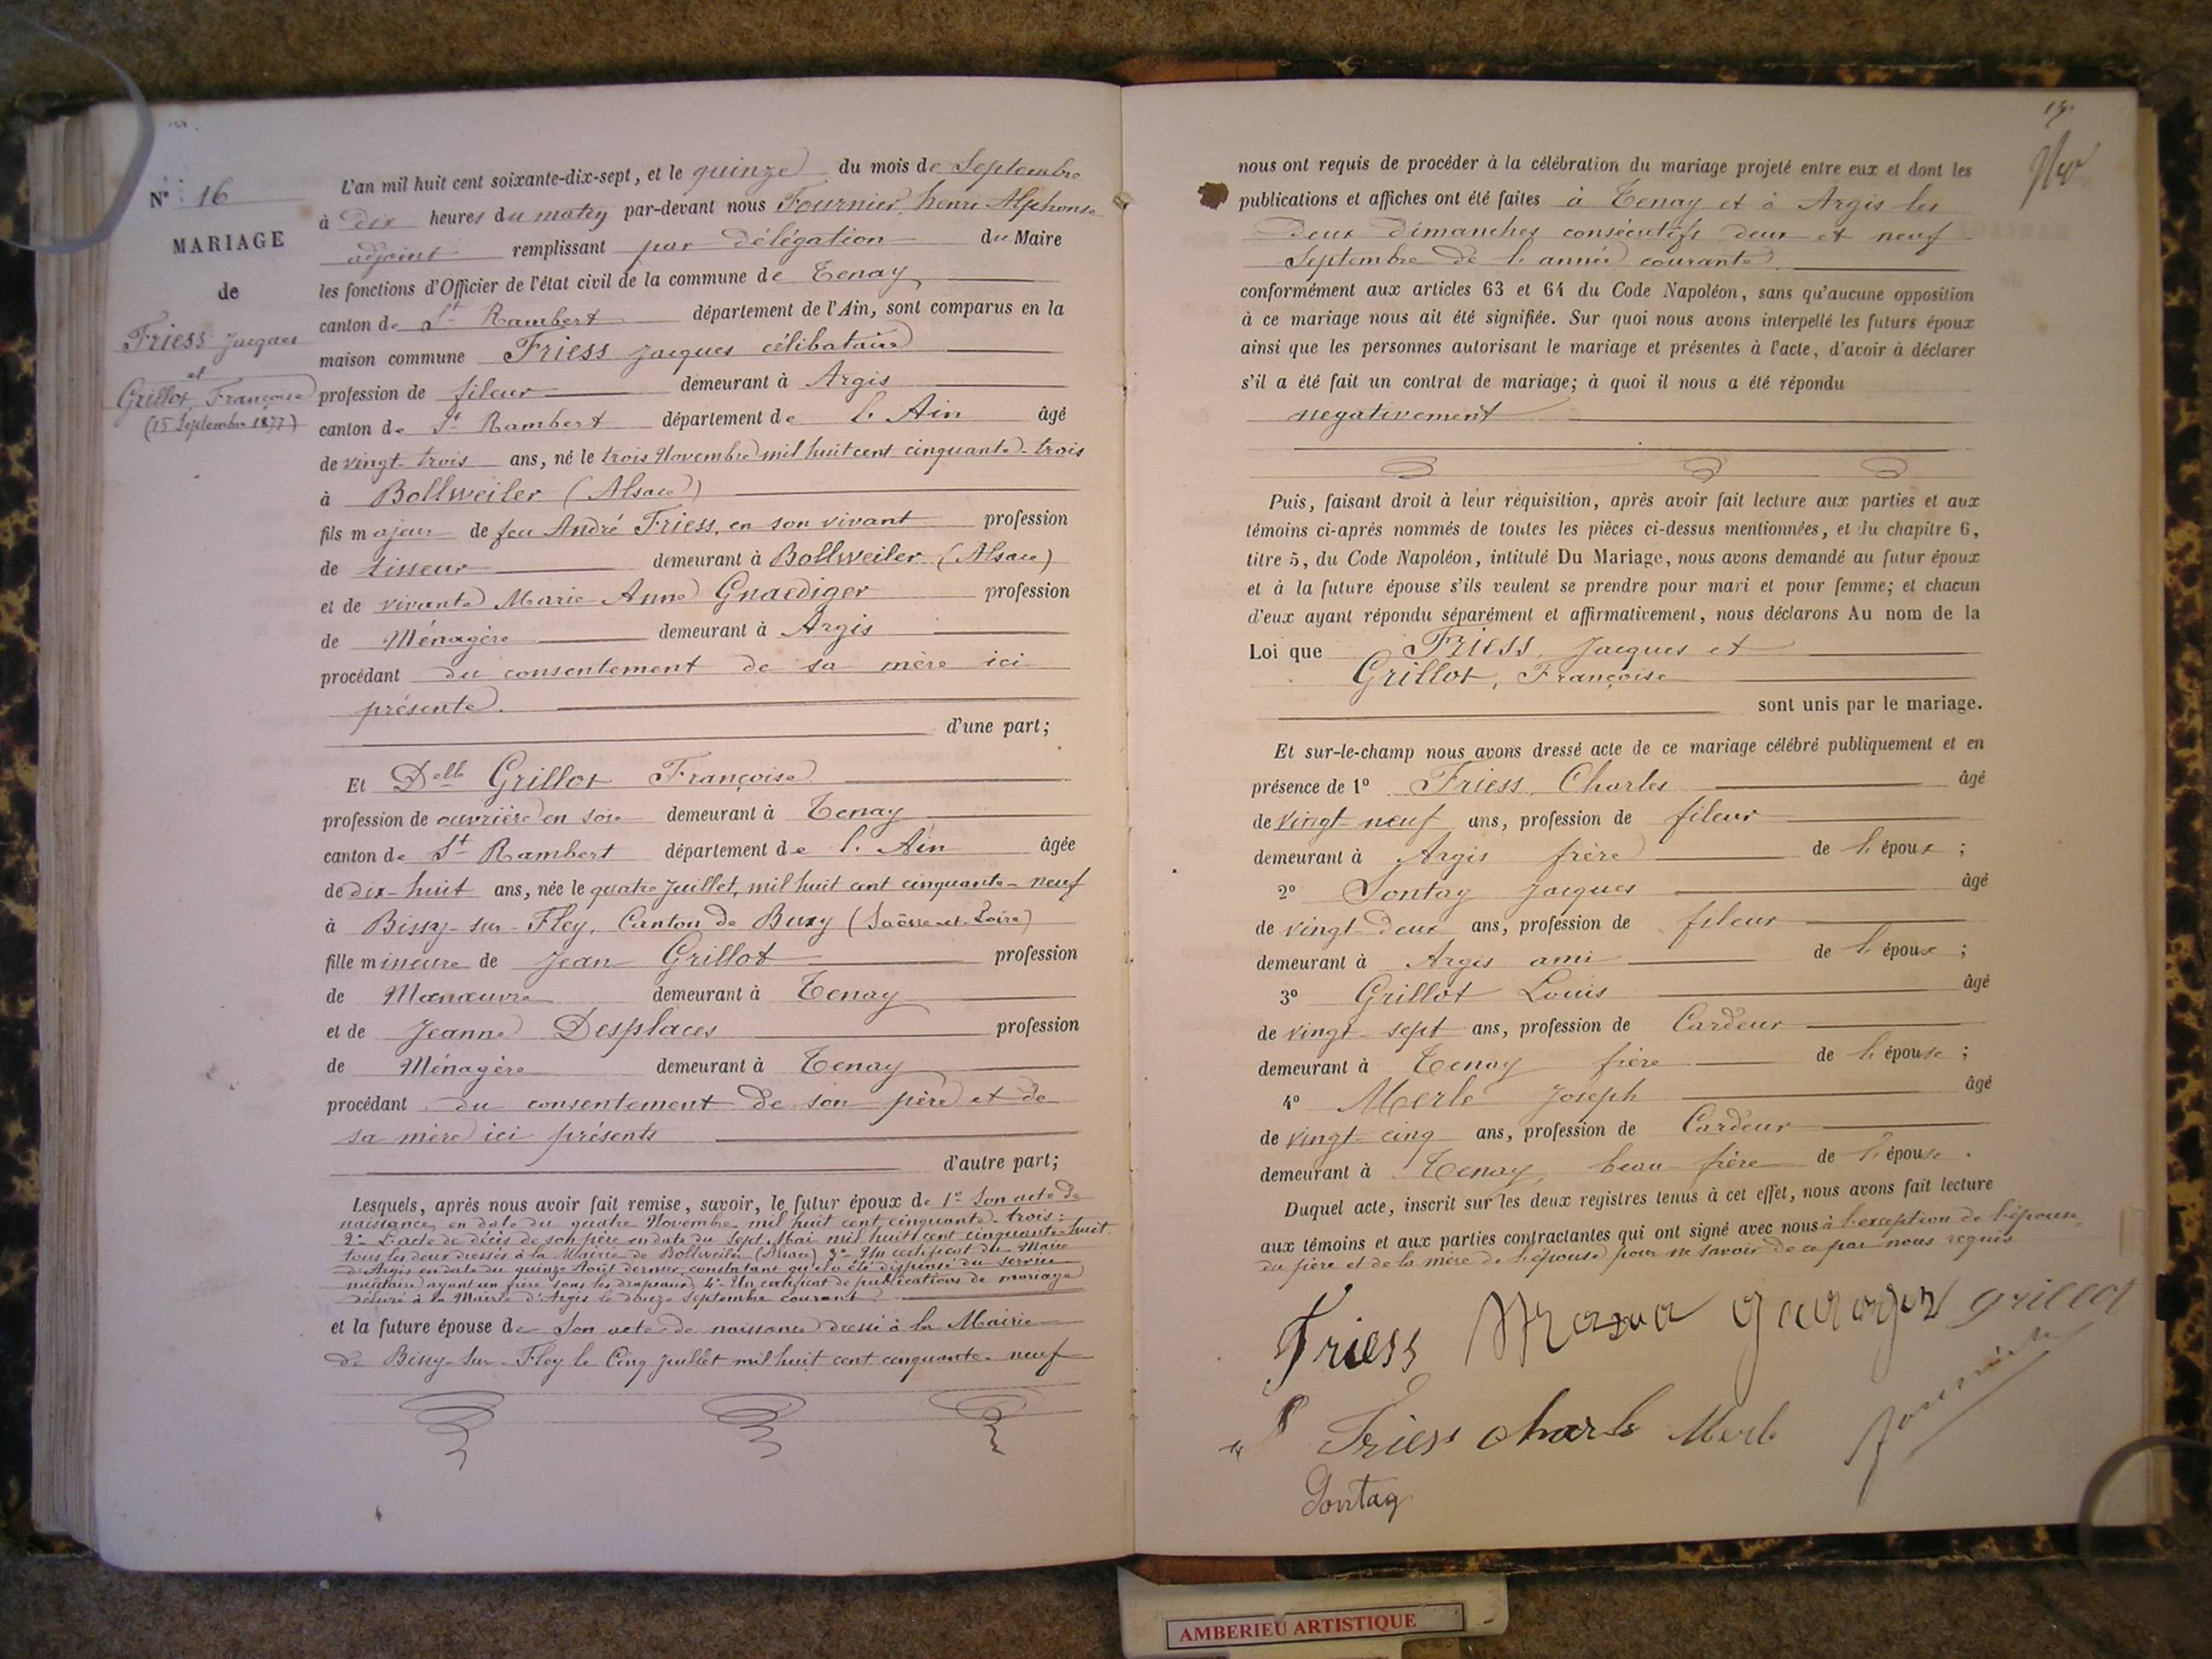 N° 16
MARIAGE
de
Friess Jacques
et
Grillot, Françoise
(15 Septembre 1877)
L'an mil huit cent soixante-dix-sept, et le quinze du mois de Septembre
à dix heures du matin par-devant nous Fournier, henri Alphonse
adjoint remplissant par délégation du Maire
les fonctions d'Officier de l'état civil de la commune de Tenay
canton de St Rambert département de l'Ain, sont comparus en la
maison commune Friess Jacques célibataire
profession de fileur demeurant à Argis
canton de St Rambert département de l'Ain âgé
de vingt-trois ans, né le trois Novembre mil huit cent cinquante-trois
à Bollweiler (Alsace)
fils majeur de feu André Friess, en son vivant profession
de tisseur demeurant à Bollweiler (Alsace)
et de vivante Marie Anne Gnaediger profession
de Ménagère demeurant à Argis
procédant du consentement de sa mère ici
présente.
d'une part;
Et Delle Grillot Françoise
profession de ouvrière en soie demeurant à Tenay
canton de St Rambert département de l'Ain âgée
de dix-huit ans, née le quatre Juillet, mil huit cent cinquante-neuf
à Bissy-sur-Fley, Canton de Buxy (Saône-et-Loire)
fille mineure de Jean Grillot profession
de Manœuvre demeurant à Tenay
et de Jeanne Desplaces profession
de Ménagère demeurant à Tenay
procédant du consentement de son père et de
sa mère ici présents
d'autre part;
Lesquels, après nous avoir fait remise, savoir, le futur époux de 1° Son acte de
naissance, en date du quatre Novembre mil huit cent cinquante-trois;
2° L'acte de décès de son père en date du sept Mai mil huit cent cinquante-huit
tous les deux dressés à la Mairie de Bollweiler (Alsace) 3° Un certificat du Maire
d'Argis en date du quinze Août dernier, constatant qu'il a été dispensé du service
militaire ayant un frère sous les drapeaux; 4° Un certificat de publications de mariage
délivré à la Mairie d'Argis le douze Septembre courant.
et la future épouse de Son acte de naissance dressé à la Mairie
de Bissy-sur-Fley le Cinq Juillet mil huit cent cinquante-neuf
nous ont requis de procéder à la célébration du mariage projeté entre eux et dont les
publications et affiches ont été faites à Tenay et à Argis les
deux dimanches consécutifs deux et neuf
Septembre de l'année courante
conformément aux articles 63 et 64 du Code Napoléon, sans qu'aucune opposition
à ce mariage nous ait été signifiée. Sur quoi nous avons interpellé les futurs époux
ainsi que les personnes autorisant le mariage et présentes à l'acte, d'avoir à déclarer
s'il a été fait un contrat de mariage; à quoi il nous a été répondu
negativement
Puis, faisant droit à leur réquisition, après avoir fait lecture aux parties et aux
témoins ci-après nommés de toutes les pièces ci-dessus mentionnées, et du chapitre 6,
titre 5, du Code Napoléon, intitulé Du Mariage, nous avons demandé au futur époux
et à la future épouse s'ils veulent se prendre pour mari et pour femme; et chacun
d'eux ayant répondu séparément et affirmativement, nous déclarons Au nom de la
Loi que Friess, Jacques et
Grillot, Françoise
sont unis par le mariage.
Et sur-le-champ nous avons dressé acte de ce mariage célébré publiquement et en
présence de 1° Friess, Charles âgé
de vingt-neuf ans, profession de fileur
demeurant à Argis frère de l'époux ;
2° Sontag Jacques âgé
de vingt-deux ans, profession de fileur
demeurant à Argis ami de l'époux ;
3° Grillot Louis âgé
de vingt-sept ans, profession de Cardeur
demeurant à Tenay frère de l'épouse ;
4° Merle Joseph âgé
de vingt-cinq ans, profession de Cardeur
demeurant à Tenay, beau-frère de l'épouse.
Duquel acte, inscrit sur les deux registres tenus à cet effet, nous avons fait lecture
aux témoins et aux parties contractantes qui ont signé avec nous à l'exception de l'épouse,
du père et de la mère de l'épouse pour ne savoir de ce par nous requis
Friess grillot
Friess charle Merle Fournier
Sontag
AMBERIEU ARTISTIQUE